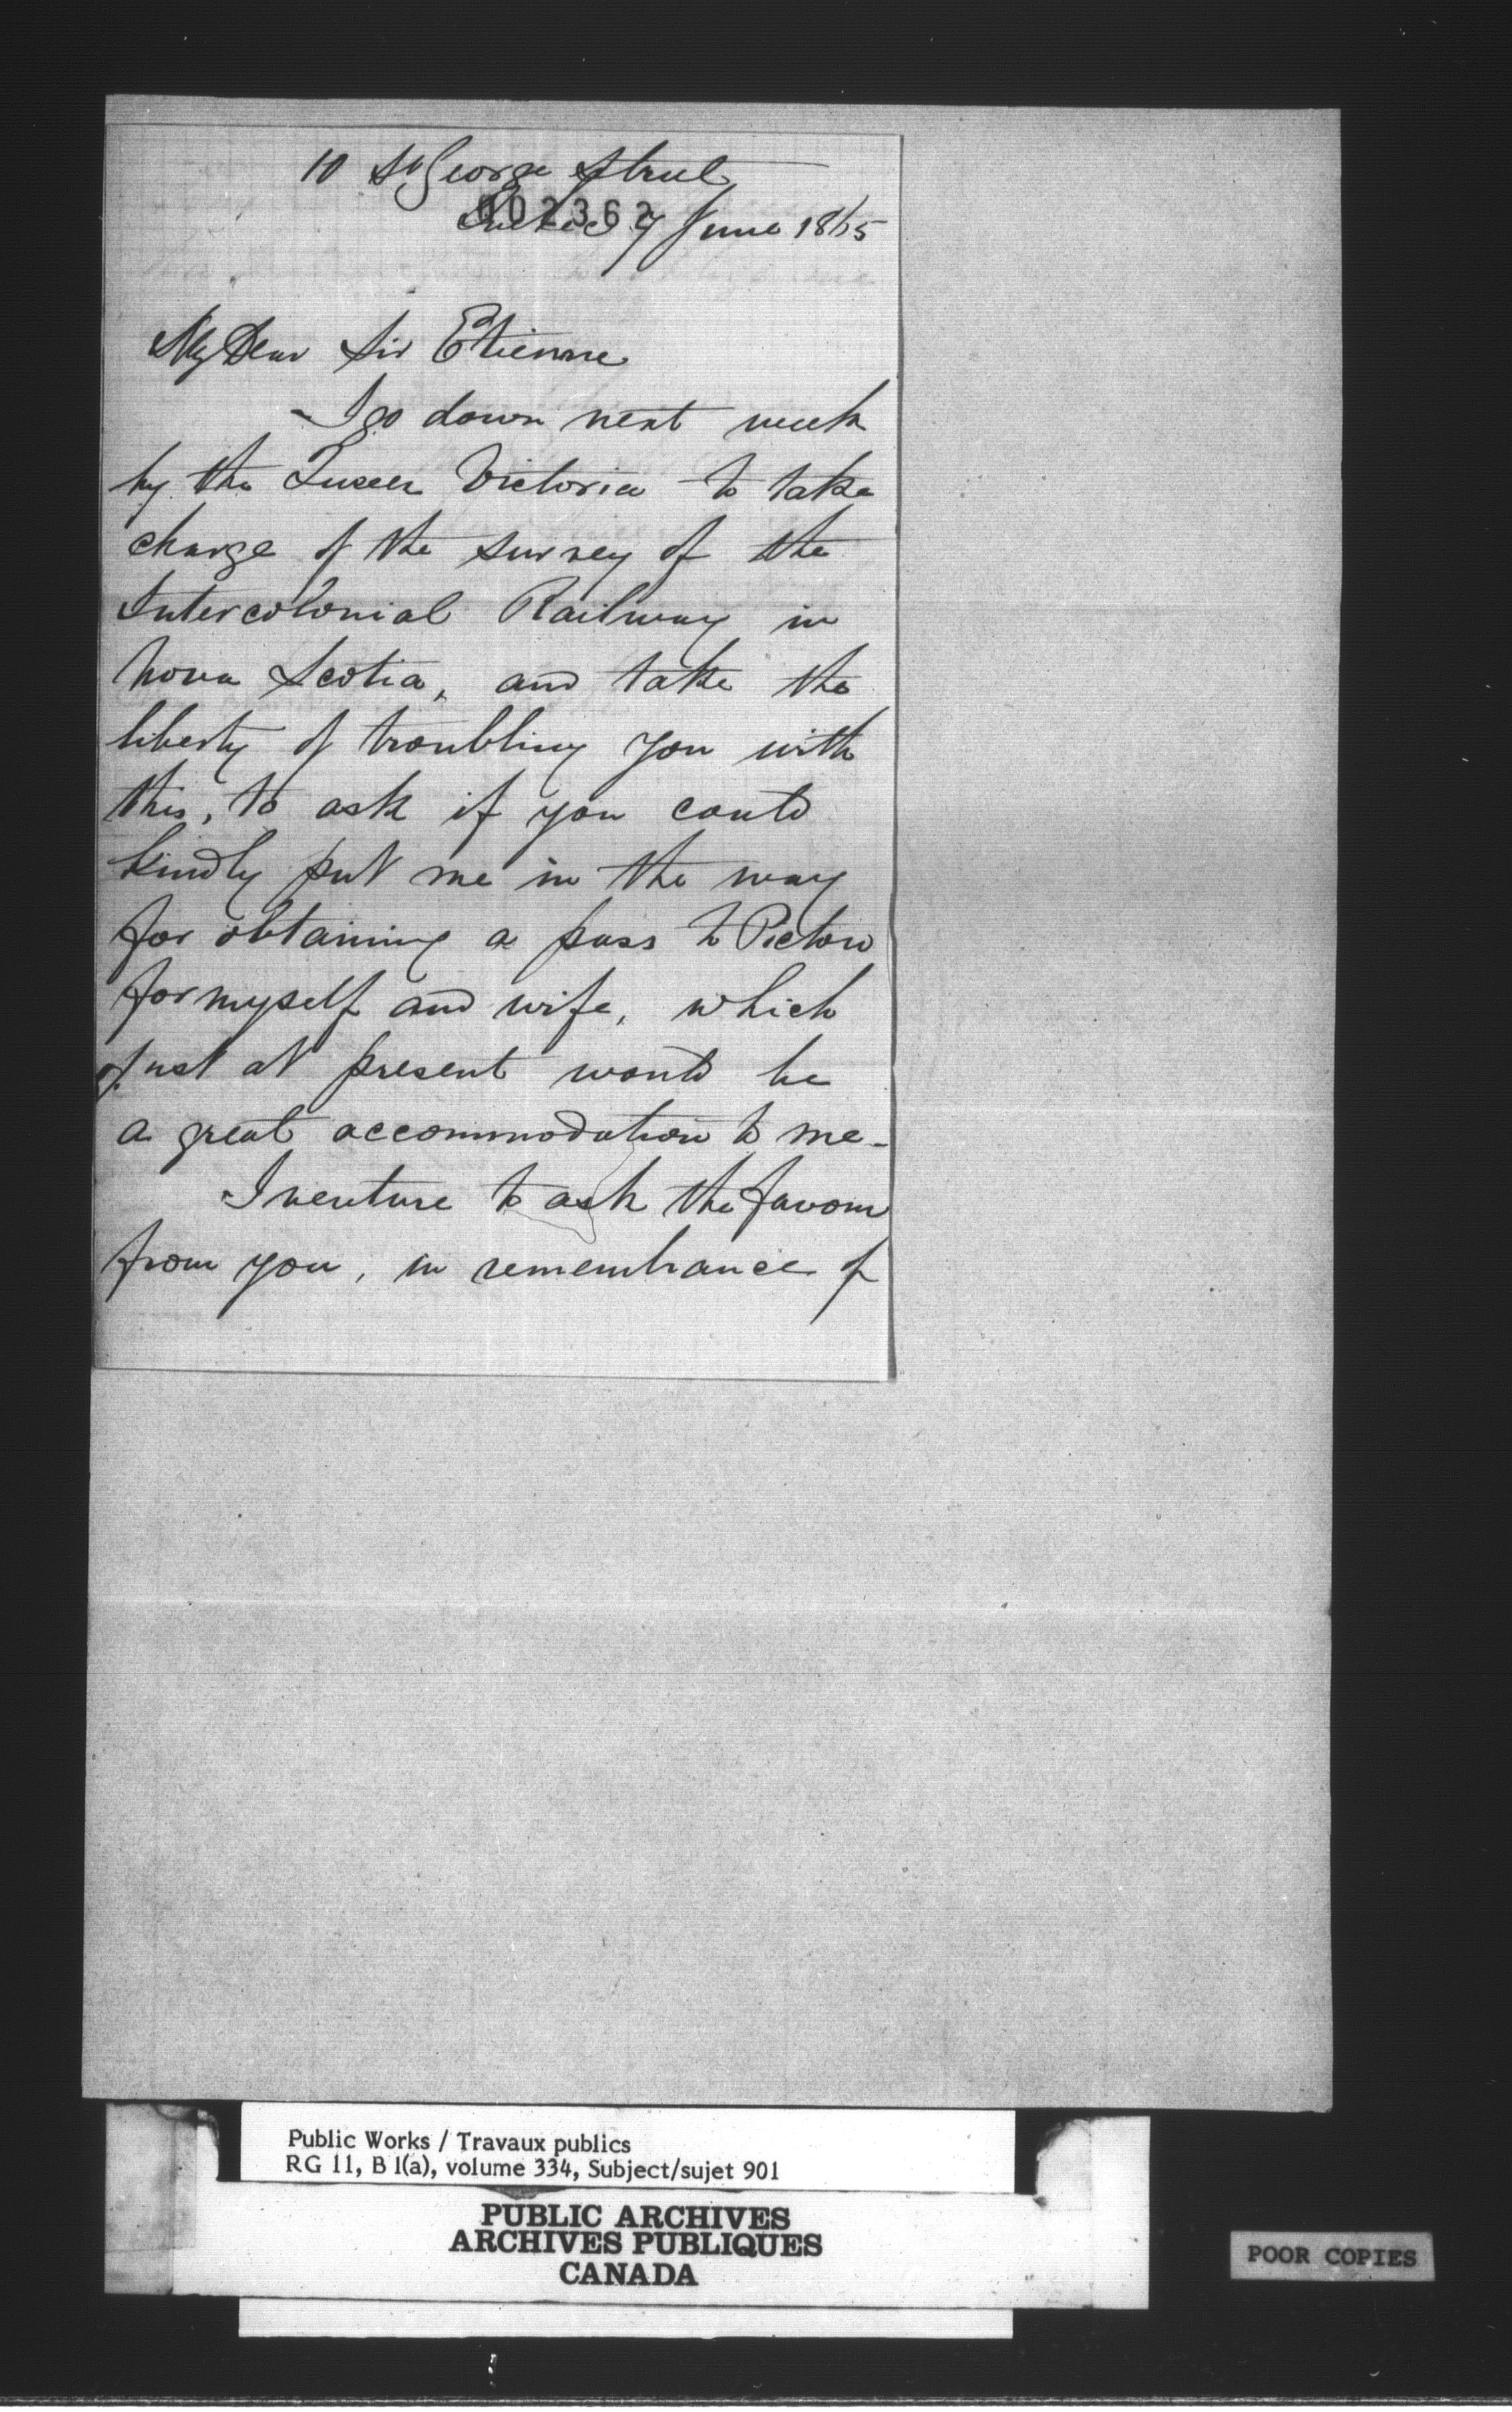 10 St George Street
002362
Quebec 7 June 1865
My Dear Sir Etienne
I go down next week
by the Queen Victoria to take
charge of the survey of the
Intercolonial Railway in
Nova Scotia, and take the
liberty of troubling you with
this, to ask if you could
kindly put me in the way
for obtaining a pass to Pictou
for myself and wife, which
just at present would be
a great accommodation to me-
I venture to ask the favour
from you, in remembrance of
Public Works / Travaux publics
RG 11, B 1(a), volume 334, Subject/sujet 901
PUBLIC ARCHIVES
ARCHIVES PUBLIQUES
CANADA
POOR COPIES